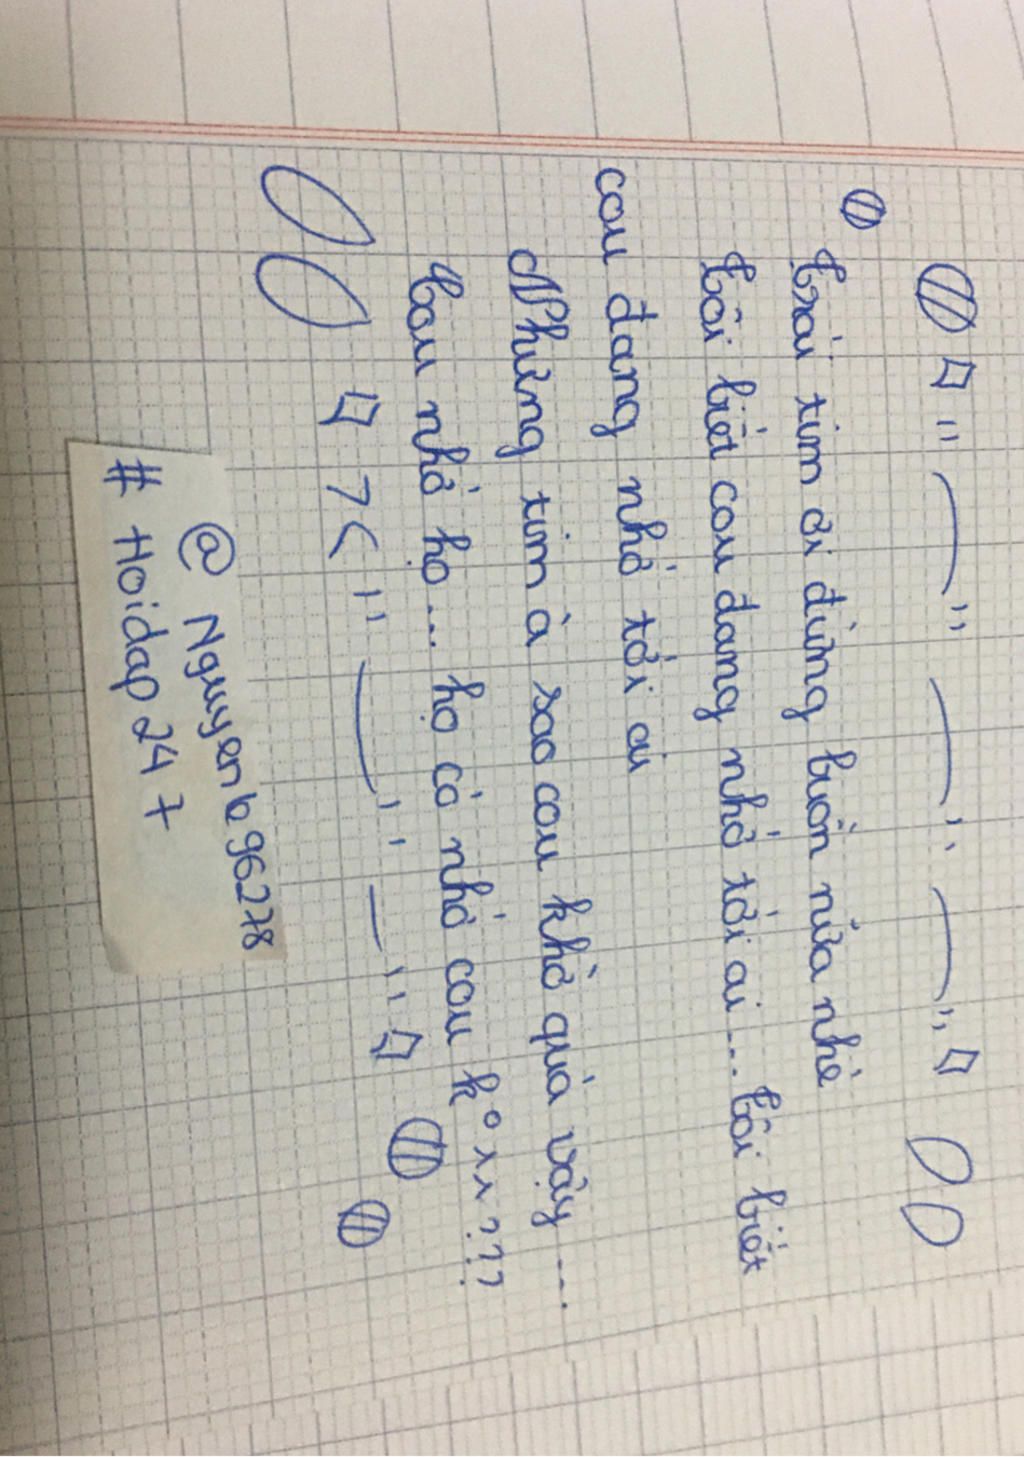 Trái tim ơi đừng buồn nữa nhé
Tôi biết cậu đang nhớ tới ai... Tôi biết
cậu đang nhớ tới ai
Nhưng tim à sao cậu khờ quá vậy...
Cậu nhớ họ... họ có nhớ cậu k° ??? 
@ Nguyenle96278
# Hoidap247